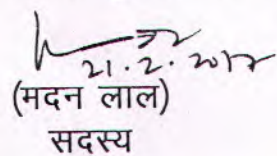 21.2.2017
(मदन लाल)
सदस्य